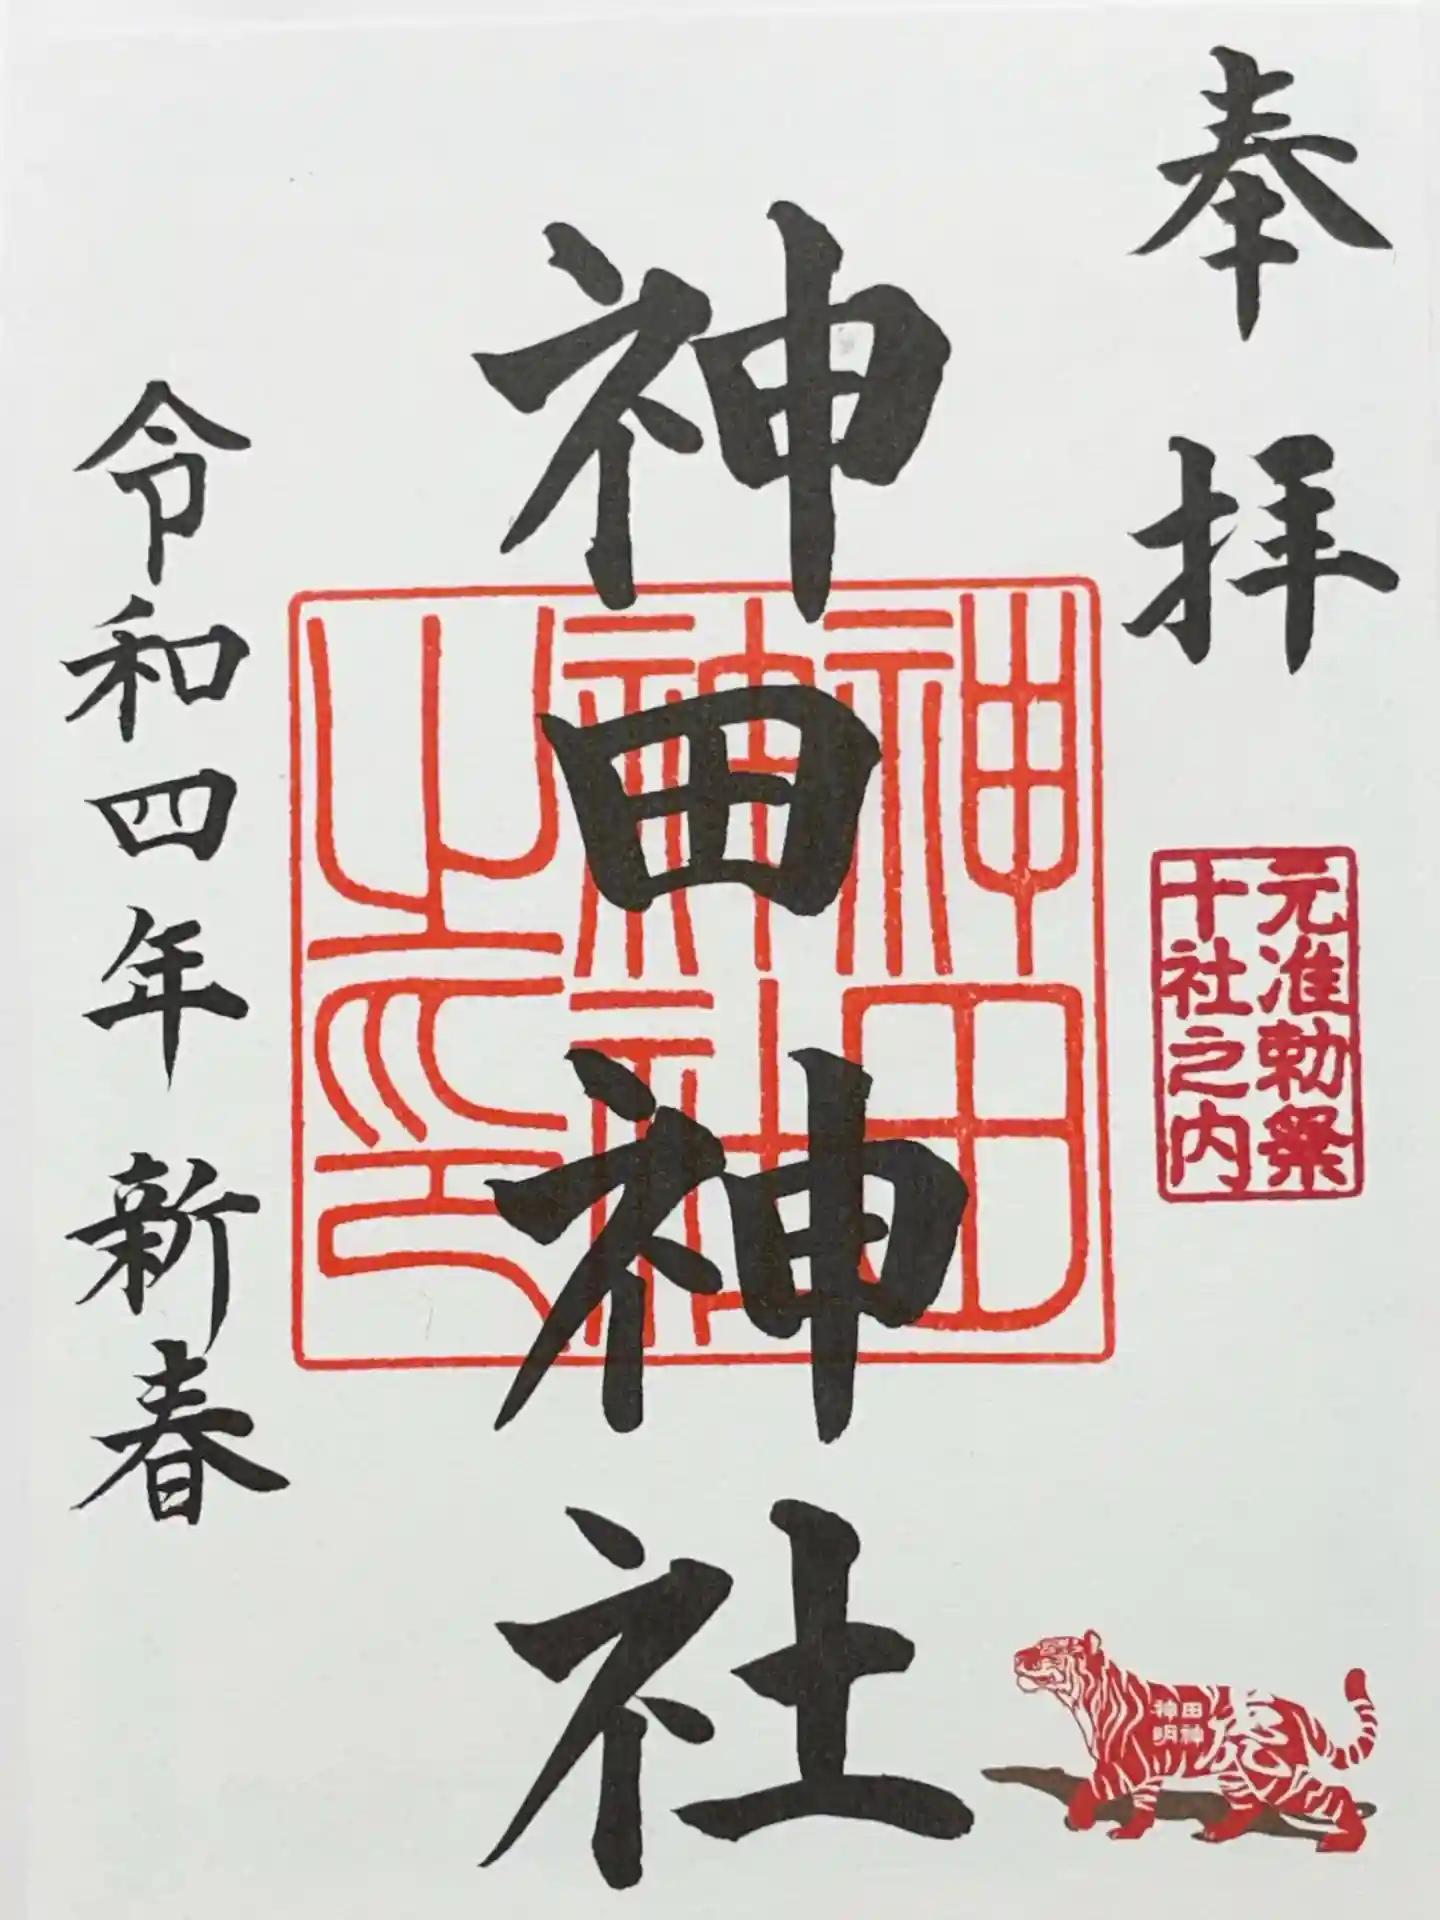 奉拝
元准勅祭
十社之内
神田神社
神田
神社
之印
令和四年 新春
田神
神明
虎